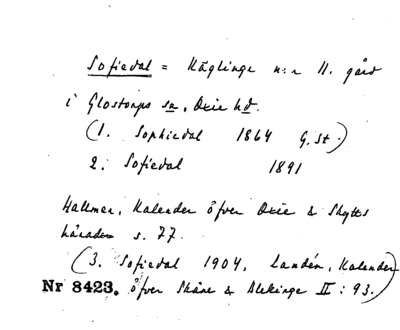 Sofiedal = Käglinge n:r 11. gård
i Glostorps sn, Oxie hd.
(1. Sophiedal 1864 G. St.)
2. Sofiedal 1891
Hallmen, Kalender öfver Oxie & Skytts
härader s. 77.
(3. Sofiedal 1904, Landén, Kalender
Nr 8423. öfver Skåne & Blekinge II: 93.)